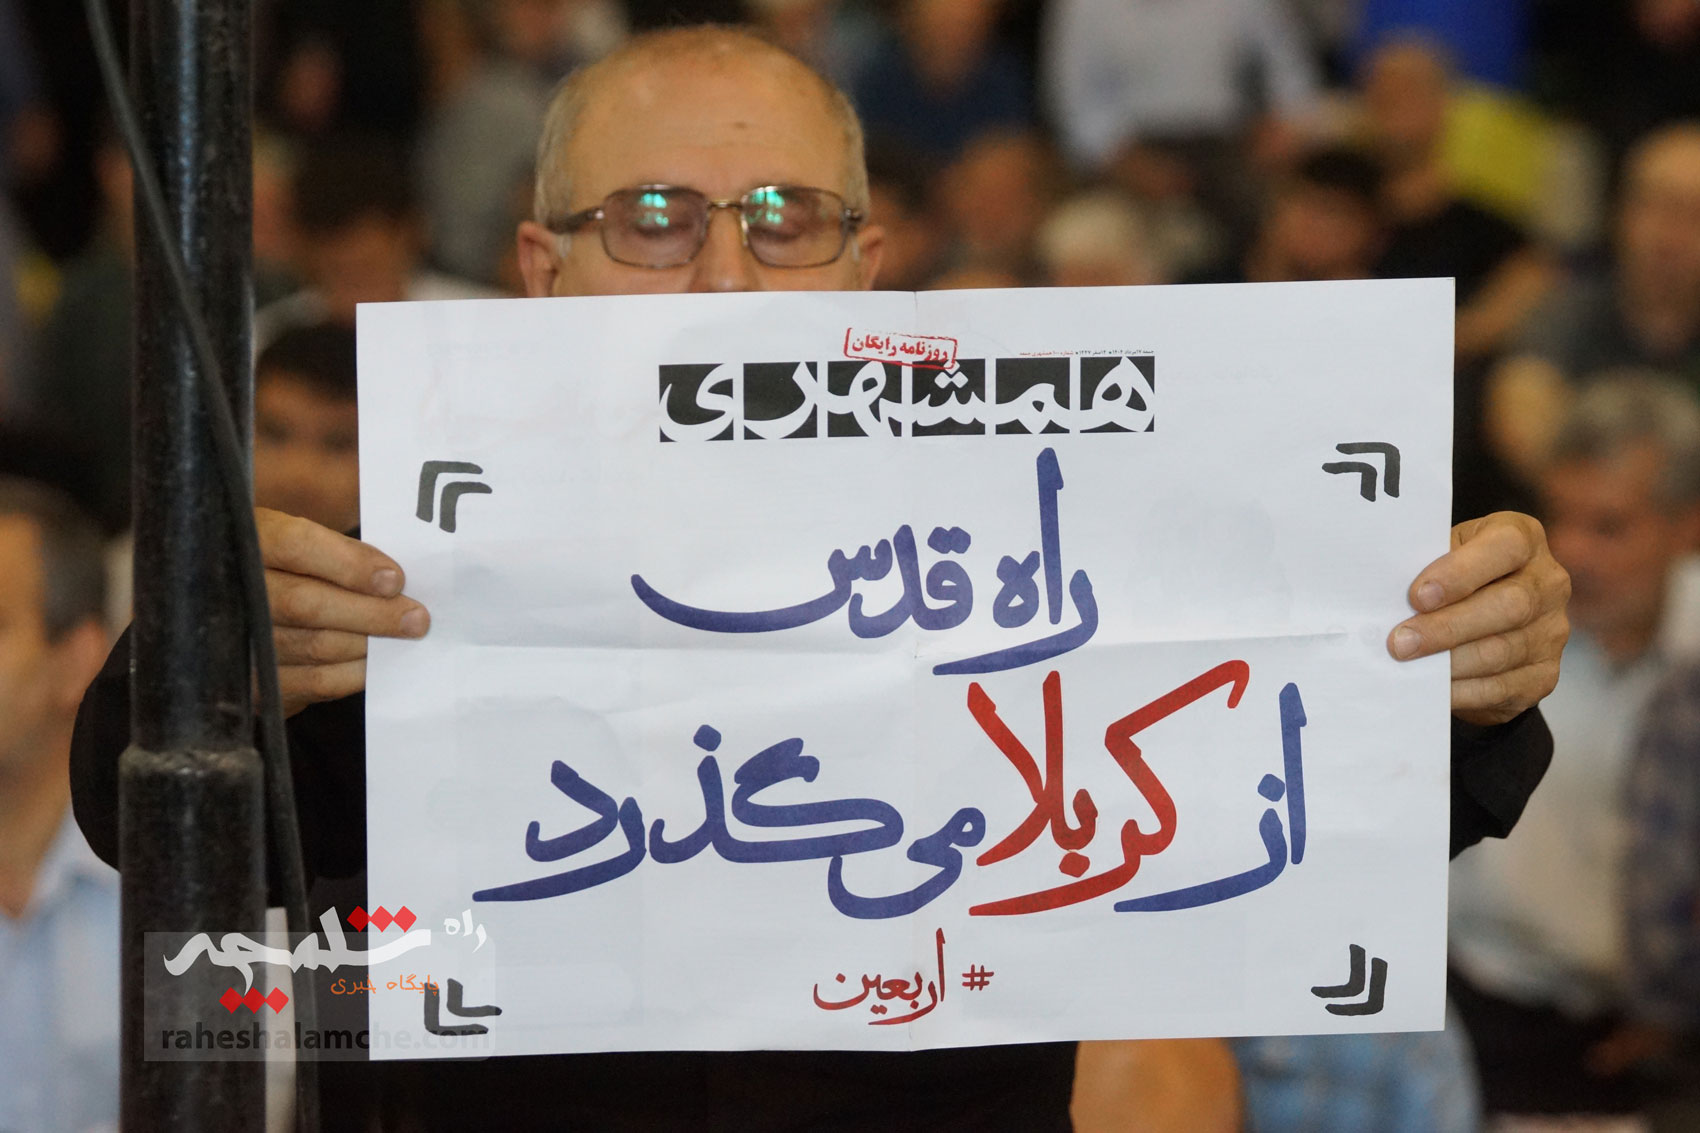 روزنامه رایگان
همشهری
راه قدس
از کربلا می‌گذرد
#اربعین
راه شلمچه
پایگاه خبری
raheshalamche.com